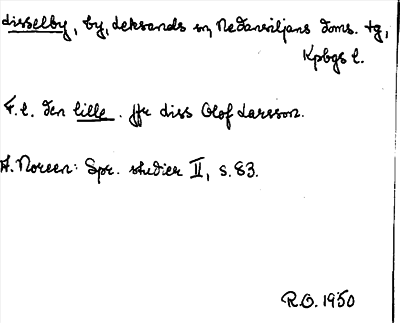 disselby, by, Leksands sn, Nedansiljans doms. tg,
Kpbgs l.
F.l. den lille. Jfr diss Olof Larsson.
A. Noreen: Spr. studier II, s. 83.
R.O. 1950